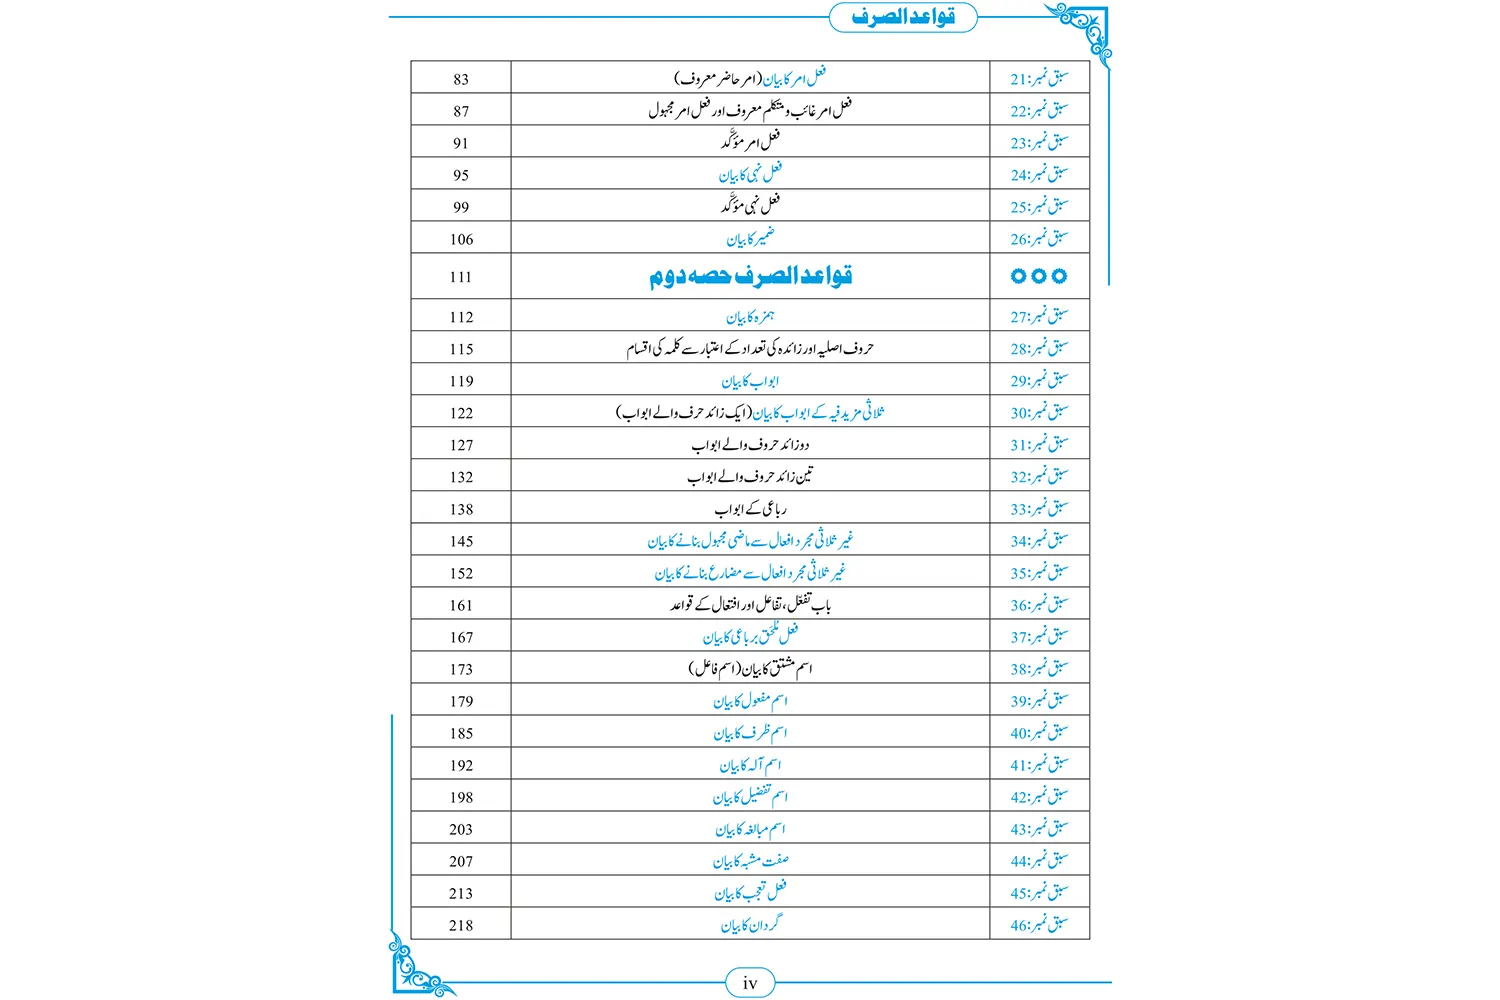 قواعد الصرف
سبق نمبر:21 فعل امر کا بیان (امر حاضر معروف) 83
سبق نمبر:22 فعل امر غائب و متکلم معروف اور فعل امر مجہول 87
سبق نمبر:23 فعل امر مؤکَّد 91
سبق نمبر:24 فعل نہی کا بیان 95
سبق نمبر:25 فعل نہی مؤکَّد 99
سبق نمبر:26 ضمیر کا بیان 106
قواعد الصرف حصہ دوم 111
سبق نمبر:27 ہمزہ کا بیان 112
سبق نمبر:28 حروف اصلیہ اور زائدہ کی تعداد کے اعتبار سے کلمہ کی اقسام 115
سبق نمبر:29 ابواب کا بیان 119
سبق نمبر:30 ثلاثی مزید فیہ کے ابواب کا بیان (ایک زائد حرف والے ابواب) 122
سبق نمبر:31 دو زائد حروف والے ابواب 127
سبق نمبر:32 تین زائد حروف والے ابواب 132
سبق نمبر:33 رباعی کے ابواب 138
سبق نمبر:34 غیر ثلاثی مجرد افعال سے ماضی مجہول بنانے کا بیان 145
سبق نمبر:35 غیر ثلاثی مجرد افعال سے مضارع بنانے کا بیان 152
سبق نمبر:36 باب تفعّل، تفاعل اور افتعال کے قواعد 161
سبق نمبر:37 فعل مُلحَق برباعی کا بیان 167
سبق نمبر:38 اسم مشتق کا بیان (اسم فاعل) 173
سبق نمبر:39 اسم مفعول کا بیان 179
سبق نمبر:40 اسم ظرف کا بیان 185
سبق نمبر:41 اسم آلہ کا بیان 192
سبق نمبر:42 اسم تفضیل کا بیان 198
سبق نمبر:43 اسم مبالغہ کا بیان 203
سبق نمبر:44 صفت مشبہ کا بیان 207
سبق نمبر:45 فعل تعجب کا بیان 213
سبق نمبر:46 گردان کا بیان 218
iv